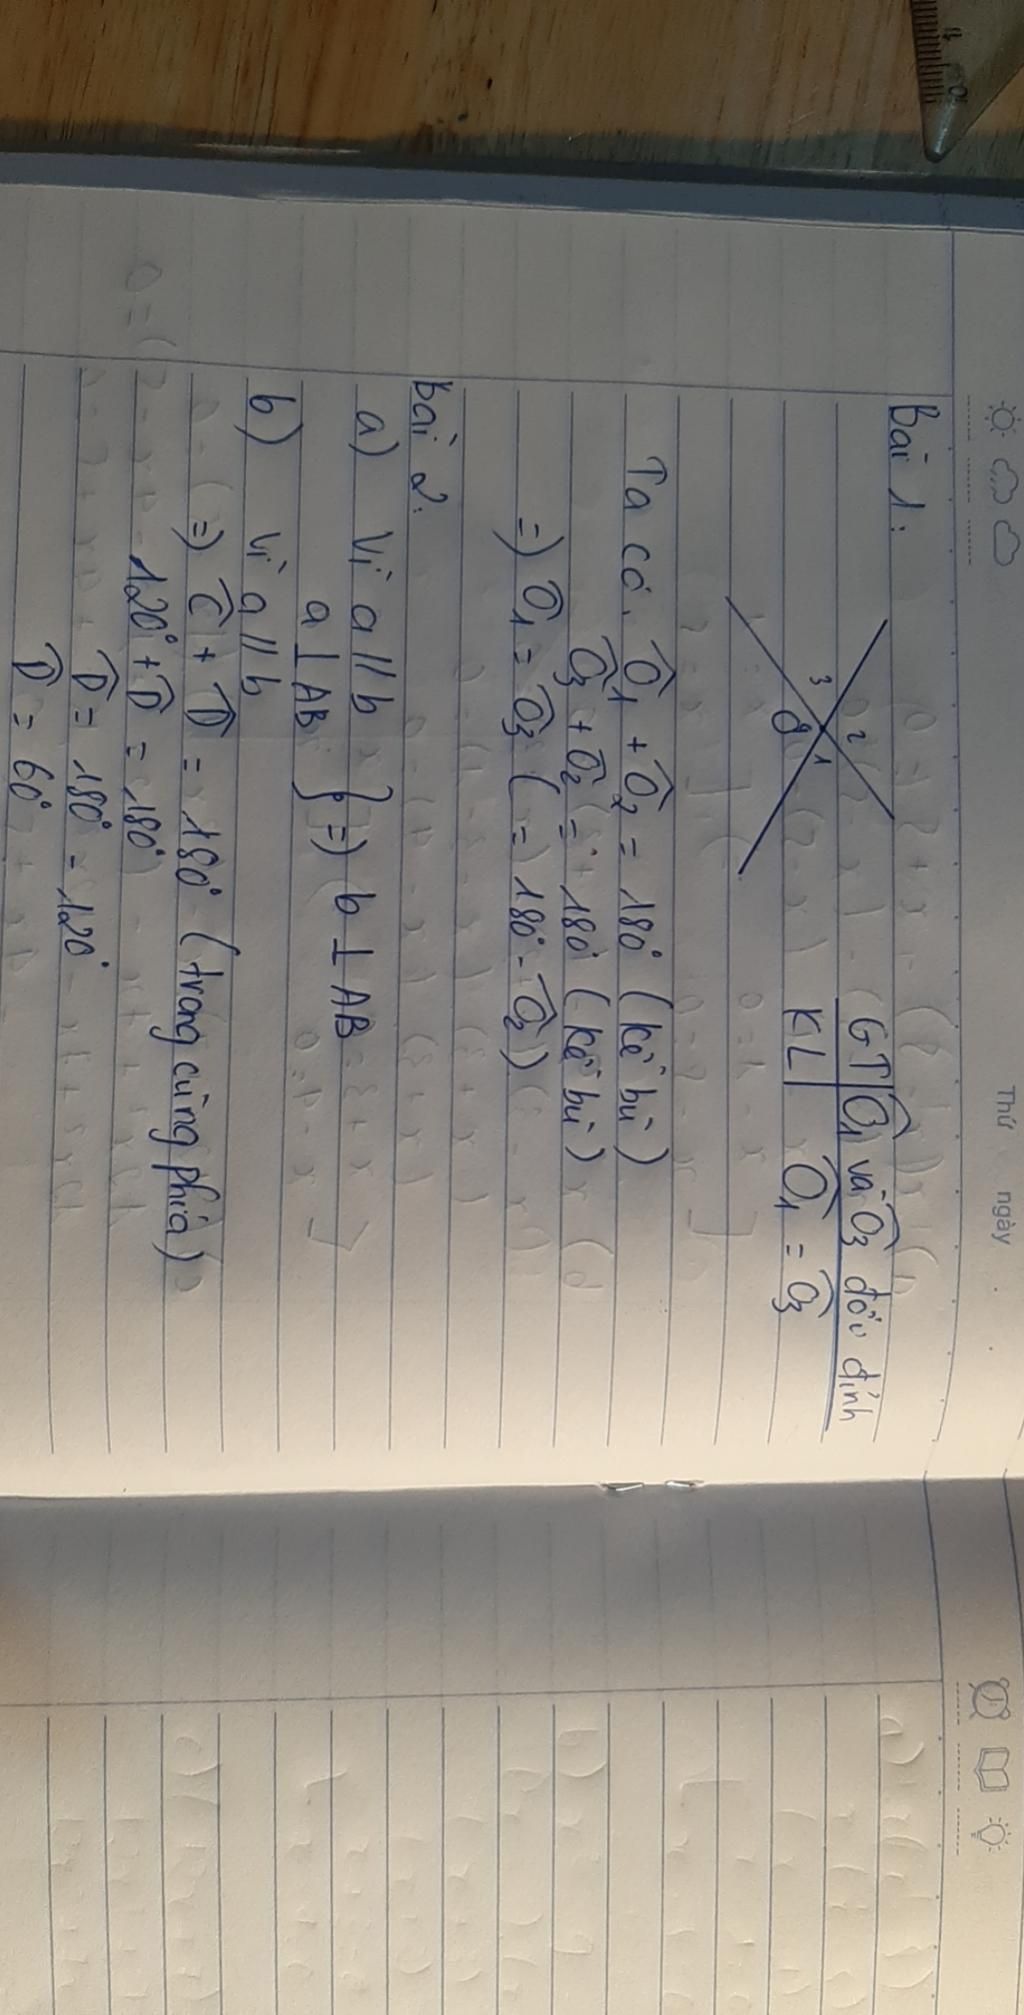 Thứ ngày
Bài 1:
GT Ô1 và Ô3 đối đỉnh
KL Ô1 = Ô3
2
3
1
O
Ta có: Ô1 + Ô2 = 180° (kề bù)
Ô3 + Ô2 = 180° (kề bù)
=) Ô1 = Ô3 ( = 180° - Ô2 )
Bài 2:
a) Vì a // b
a ⊥ AB } =) b ⊥ AB
b) Vì a // b
=) Ĉ + D̂ = 180° (trong cùng phía)
120° + D̂ = 180°
D̂ = 180° - 120°
D̂ = 60°